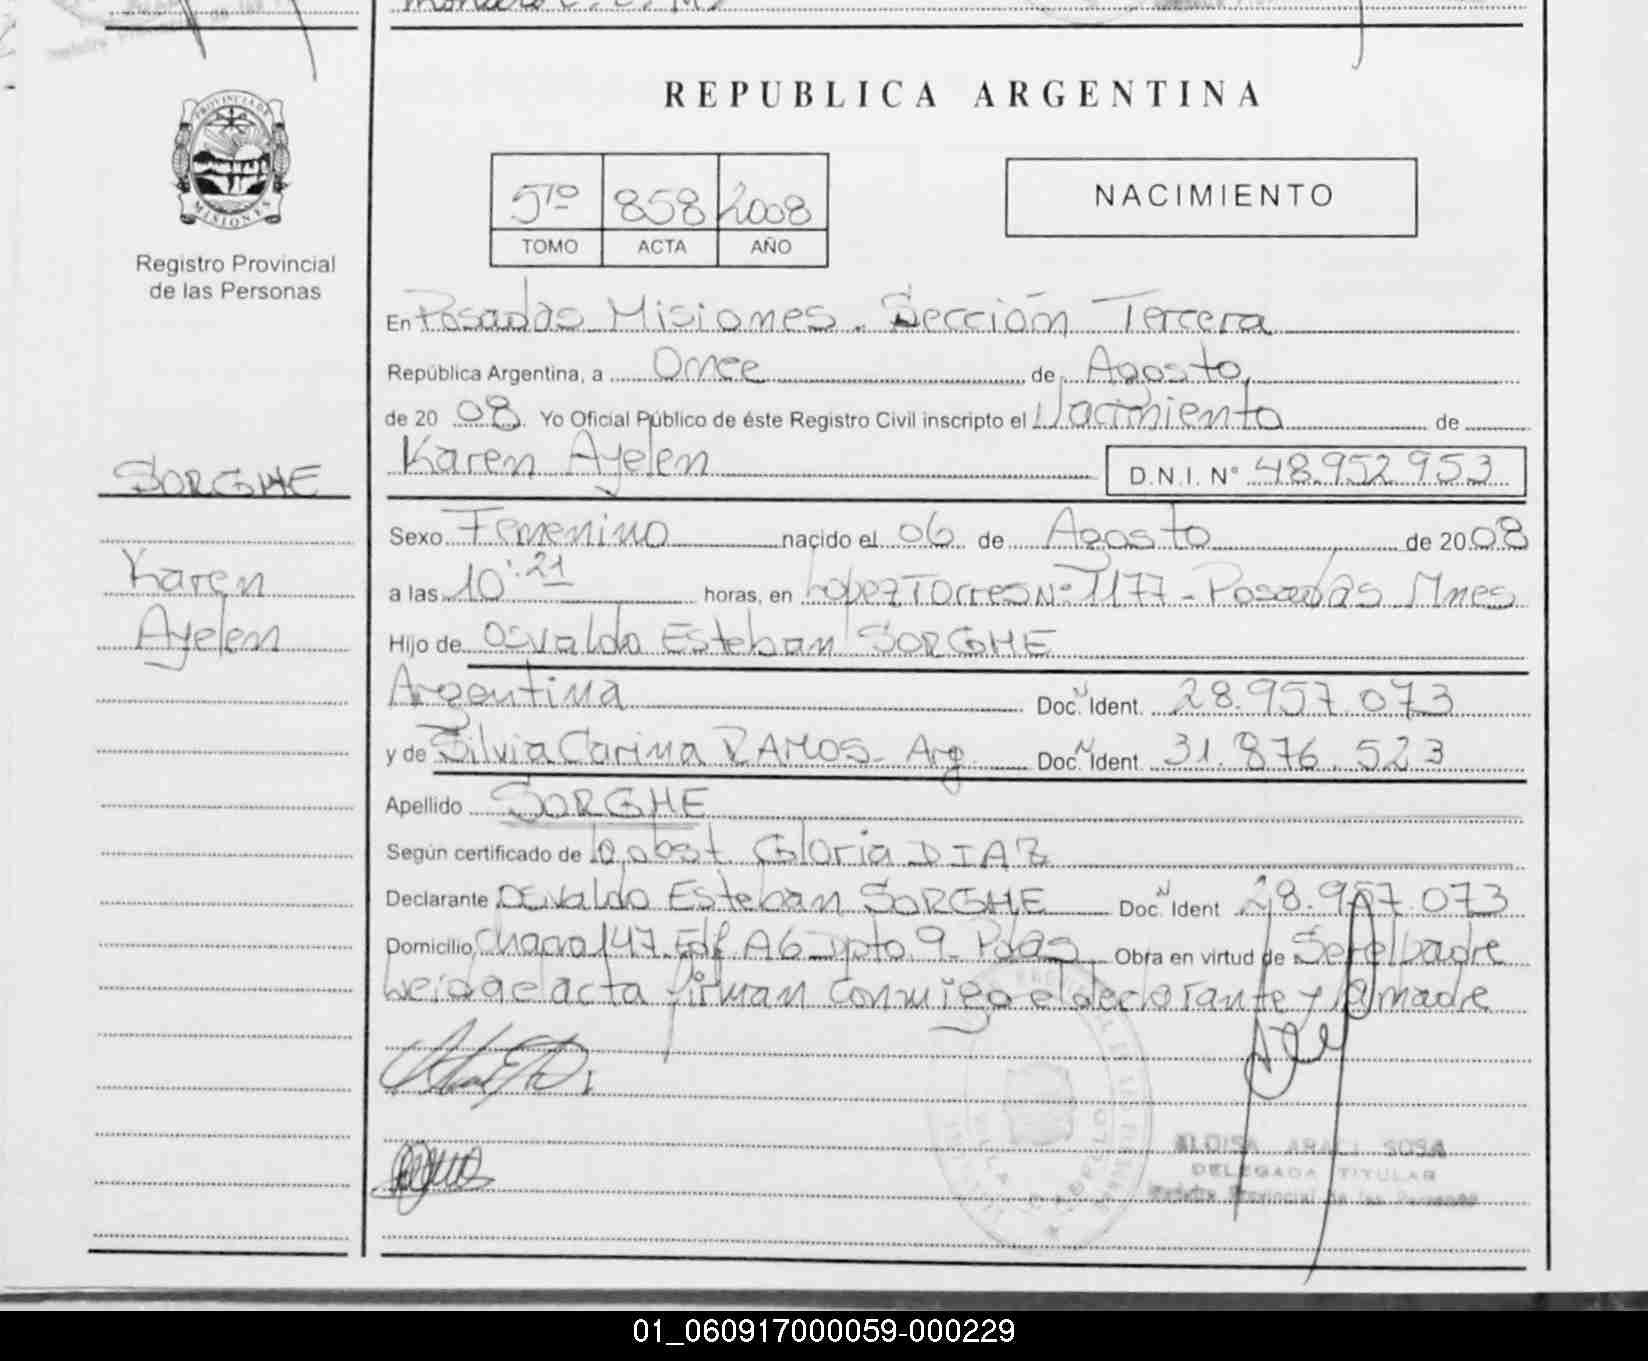 REPUBLICA ARGENTINA
PROVINCIA DE
MISIONES
Registro Provincial
de las Personas
5to 858 2008
TOMO ACTA AÑO
NACIMIENTO
En Posadas Misiones. Sección Tercera
República Argentina, a Once de Agosto,
de 20 08. Yo Oficial Público de éste Registro Civil inscripto el Nacimiento de
Karen Ayelen D.N.I. Nº 48.952.953
SORGHE
Sexo Femenino nacido el 06 de Agosto de 20 08
Karen
a las 10:21 horas, en Lopez Torres Nº 1177 - Posadas Mnes
Ayelen
Hijo de Osvaldo Esteban SORGHE
Argentina Doc. N Ident. 28.957.073
y de Silvia Carina RAMOS - Arg. Doc. N Ident. 31.876.523
Apellido SORGHE
Según certificado de la obst. Gloria DIAZ
Declarante Osvaldo Esteban SORGHE Doc. N Ident 28.957.073
Domicilio Chacra 147 Edf. A6 Dpto. 9 - Pdas Obra en virtud de Ser el padre
Leida el acta firman conmigo el declarante y la madre
ARACI SOSA
DELEGADA TITULAR
Registro Provincial de las Personas
01_060917000059-000229